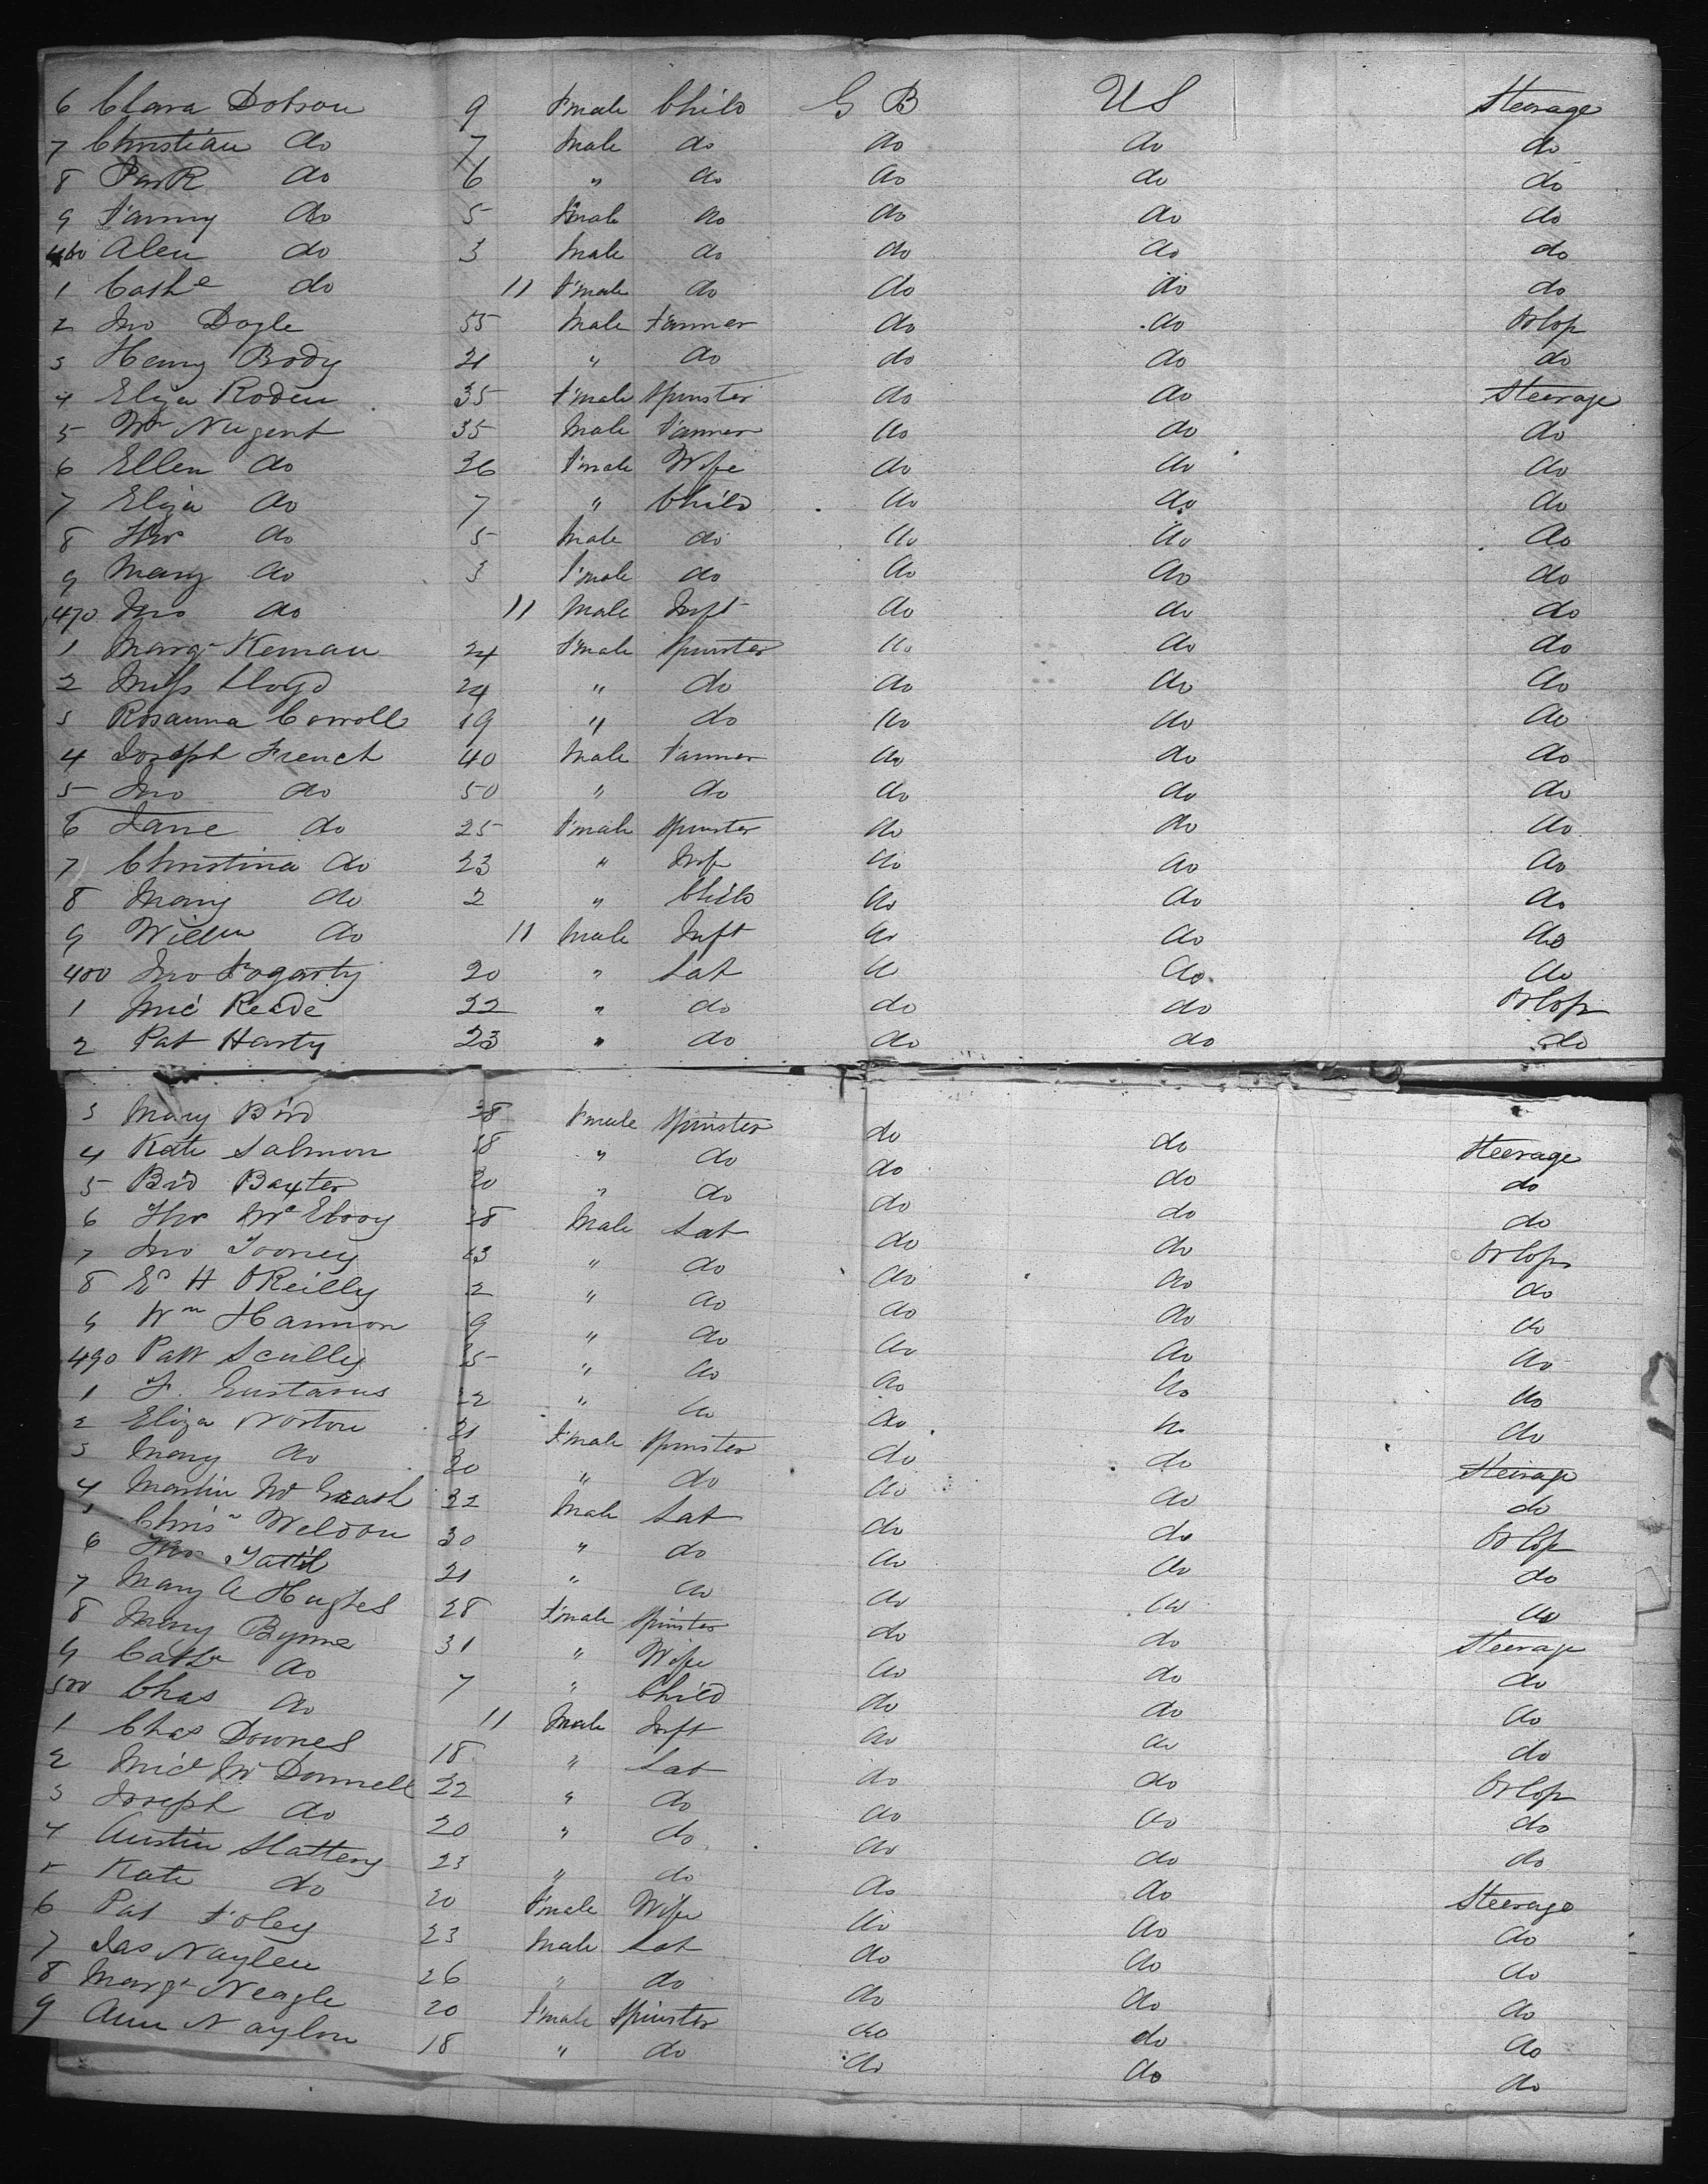 6 Clara Dobson 9 F'male Child G B US Steerage
7 Christian do 7 Male do do do do
8 Park do 6 " do do do do
9 Fanny do 5 F'male do do do do
460 Alen do 3 Male do do do do
1 Cathe do 11 F'male do do do do
2 Jno Dogle 55 Male Farmer do do Orlop
3 Henry Body 21 " do do do do
4 Eliza Roden 35 F'male Spinster do do Steerage
5 Wm Nugent 35 Male Farmer do do do
6 Ellen do 36 F'male Wife do do do
7 Eliza do 7 " Child do do do
8 Thos do 5 Male do do do do
9 Mary do 3 F'male do do do do
470 Jno do 11 Male Inft do do do
1 Margt Kernan 24 F'male Spinster do do do
2 Miss Lloyd 24 " do do do do
3 Rosanna Corroll 19 " do do do do
4 Joseph French 40 Male Farmer do do do
5 Jno do 50 " do do do do
6 Jane do 25 F'male Spinster do do do
7 Christina do 23 " Wife do do do
8 Mary do 2 " Child do do do
9 Willm do 11 Male Inft do do do
480 Jno Fogarty 20 " Lab do do do
1 Mic Reade 22 " do do do Orlop
2 Pat Harty 23 " do do do do
3 Mary Bird 38 F'male Spinster do do Steerage
4 Kate Salmon 18 " do do do do
5 Brd Baxter 20 " do do do do
6 Thos McEvoy 28 Male Lab do do Orlop
7 Jno Tooney 23 " do do do do
8 Ed H O'Reilly 2 " do do do do
9 Wm Hannon 9 " do do do do
490 Patk Scully 35 " do do do do
1 F. Gustavus 22 " do do do do
2 Eliza Norton 21 F'male Spinster do do Steerage
3 Mary do 20 " do do do do
4 Martin McGrath 32 Male Lab do do Orlop
5 Chrisr Weldon 30 " do do do do
6 Thos 21 " do do do do
7 Mary A Hughes 28 F'male Spinster do do Steerage
8 Mary Byrne 31 " Wife do do do
9 Cathe do 7 " Child do do do
500 Chas do 11 Male Inft do do do
1 Chas Downes 18 " Lab do do Orlop
2 Micl McDonnell 22 " do do do do
3 Joseph do 20 " do do do do
4 Austin Slattery 23 " do do do Steerage
5 Kate do 20 F'male Wife do do do
6 Pat Foley 23 Male Lab do do do
7 Jas Naylen 26 " do do do do
8 Margt Neagle 20 F'male Spinster do do do
9 Ann Naylon 18 " do do do do